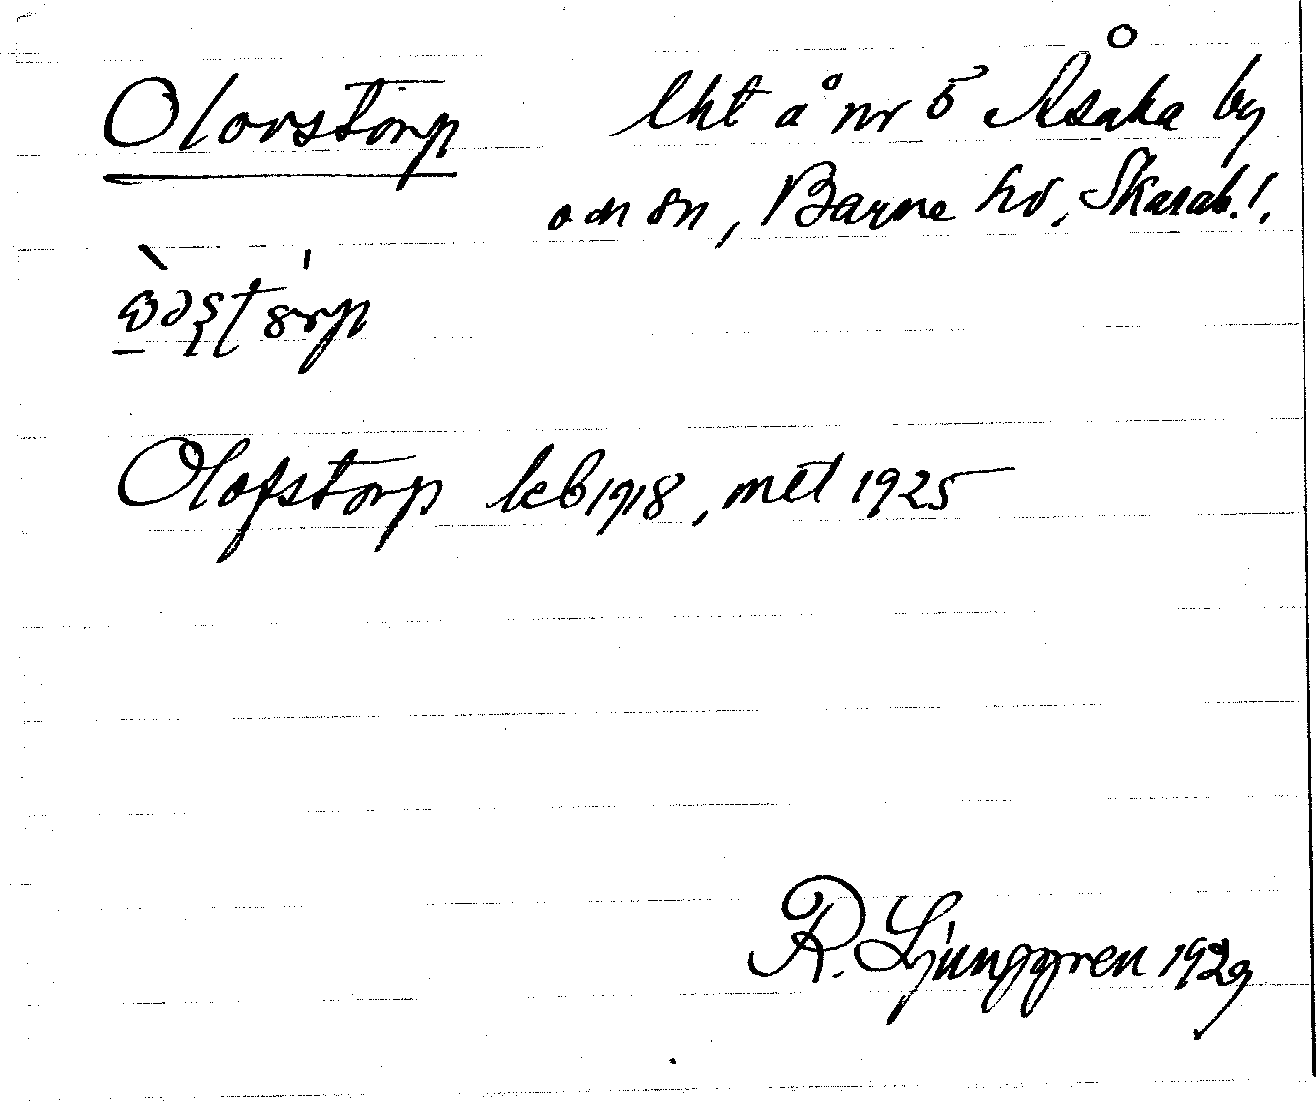 Olovstorp lht å nr 5 Åsaka by
och sn, Barne hd, Skarab.l.
Olofstorp leb 1918, mtl 1925
R. Ljunggren 1929